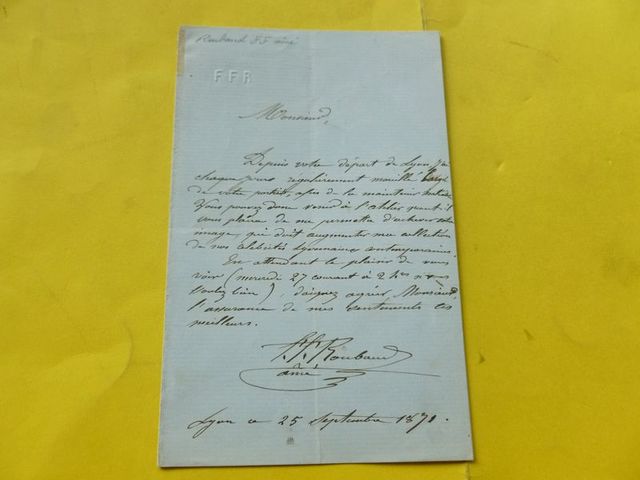 Roubaud F.F. aîné
FFR
Monsieur,
Depuis votre départ de Lyon, j'ai
chaque jours régulièrement mouillé
de votre portrait, afin de le maintenir
Vous pouvez donc venir à l'atelier quand il
vous plaira de me permettre d'achever votre
image, qui doit augmenter ma collection
de nos célébrités Lyonnaises contemporaines.
En attendant le plaisir de vous
voir (mercredi 27 courant à 2 hes
voulez bien), daignez agréer, Monsieur,
l'assurance de mes sentiments les
meilleurs.
F.F. Roubaud
aîné
Lyon ce 25 Septembre 1871.